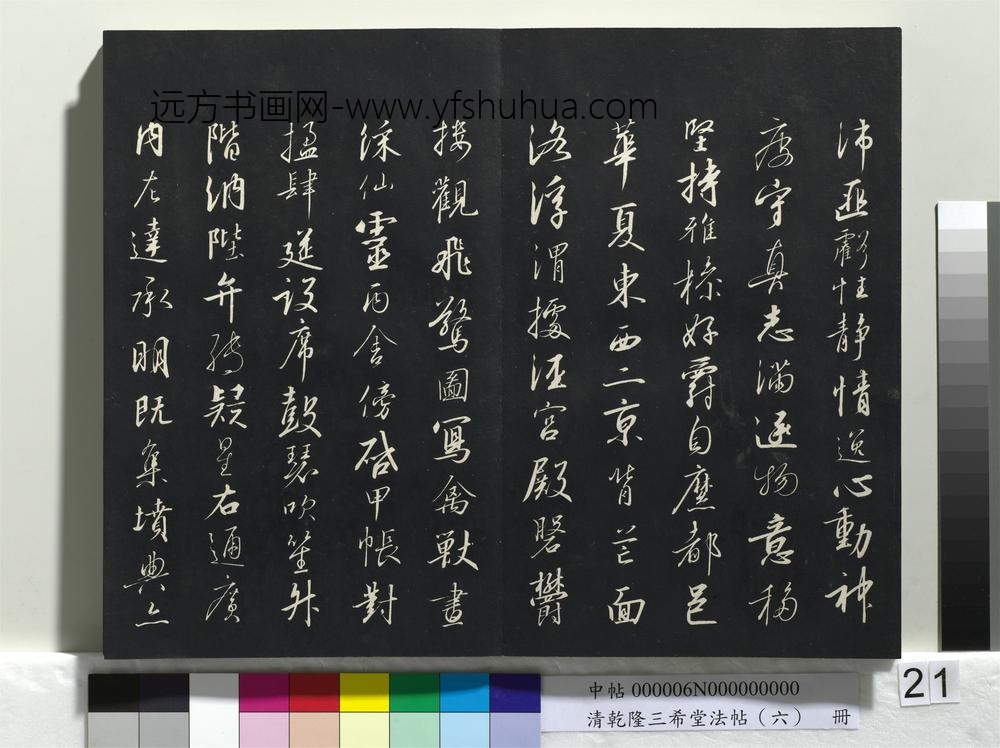 远方书画网-www.yfshuhua.com
沛匪虧性靜情逸心動神
疲守真志滿逐物意移
堅持雅操好爵自縻都邑
華夏東西二京背芒面
洛浮渭據涇宮殿磐鬱
樓觀飛驚圖寫禽獸畫
綵仙靈丙舍傍啟甲帳對
楹肆筵設席鼓瑟吹笙升
階納陛弁轉疑星右通廣
內左達承明既集墳典亦
21
中帖 000006N000000000
清乾隆三希堂法帖（六） 冊